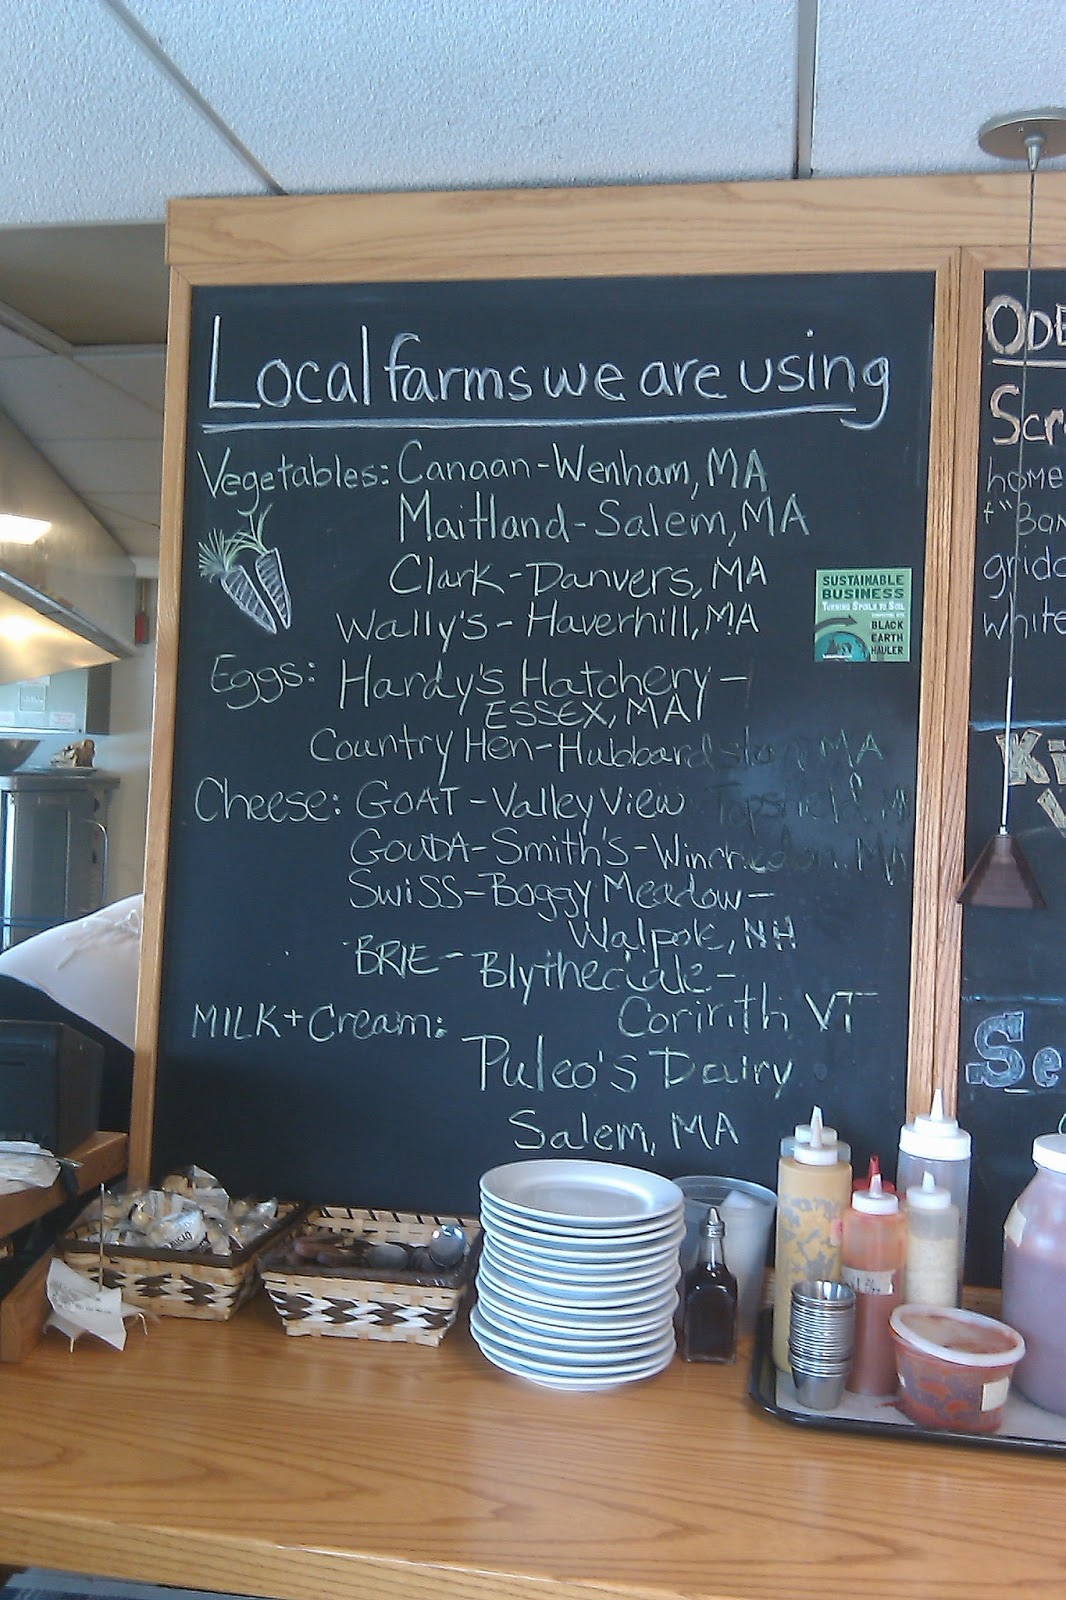 Local farms we are using
Vegetables: Canaan - Wenham, MA
Maitland - Salem, MA
Clark - Danvers, MA
Wally's - Haverhill, MA
Eggs: Hardy's Hatchery -
ESSEX, MA
Country Hen - Hubbardston, MA
Cheese: GOAT - Valley View Topsfield, MA
GOUDA - Smith's - Winchendon, MA
SWiSS - Boggy Meadow -
Walpole, NH
BRIE - Blythedale -
Corinth VT
MILK + Cream:
Puleo's Dairy
Salem, MA
SUSTAINABLE
BUSINESS
TURNING SPOILS TO SOIL
BLACK
EARTH
HAULER
ODE
Scr
home
+ "Ban
gridd
white
Ki
Se